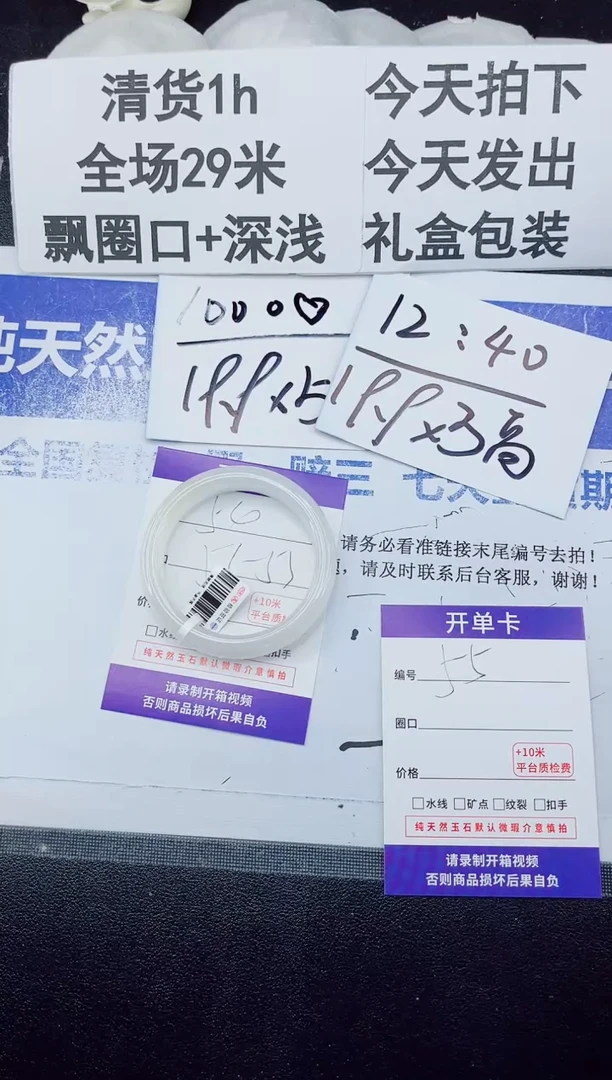 清货1h
全场29米
飘圈口+深浅
今天拍下
今天发出
礼盒包装
纯天然
1000♡
12:40
七天
请务必看准链接末尾编号去拍!
题,请及时联系后台客服,谢谢!
56
+10米
平台质检
纯天然玉石默认微瑕介意慎拍
请录制开箱视频
否则商品损坏后果自负
开单卡
编号 55
圈口
价格
+10米
平台质检费
□水线 □矿点 □纹裂 □扣手
纯天然玉石默认微瑕介意慎拍
请录制开箱视频
否则商品损坏后果自负